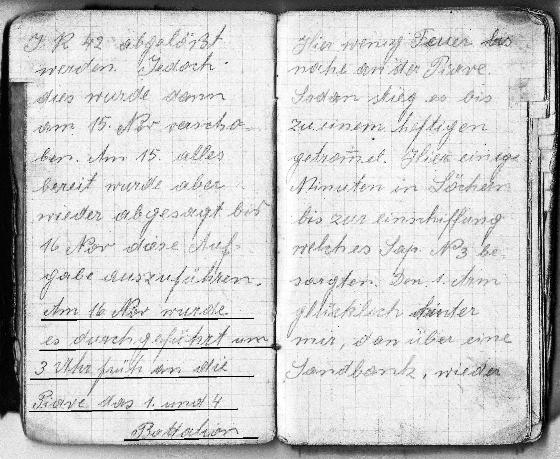 I. R. 42 abgelößt
werden. Jedoch
dies wurde dann
am 15. Nov verscho-
ben. Am 15. alles
bereit wurde aber
wieder abgesagt bis
16 Nov diese Auf-
gabe auszuführen.
Am 16 Nov wurde
es durchgeführt um
3 Uhr früh an die
Piave das 1. und 4
Battalion
Hier wenig Feuer bis
nahe an der Piave.
Sodan stieg es bis
zu einem heftigen
getromel. Hier einige
Minuten in Löchern
bis zur einschiffung
welches Sap. N 3 be-
sorgten. Den 1. Arm
glücklich hinter
mir, dan über eine
Sandbank, wieder